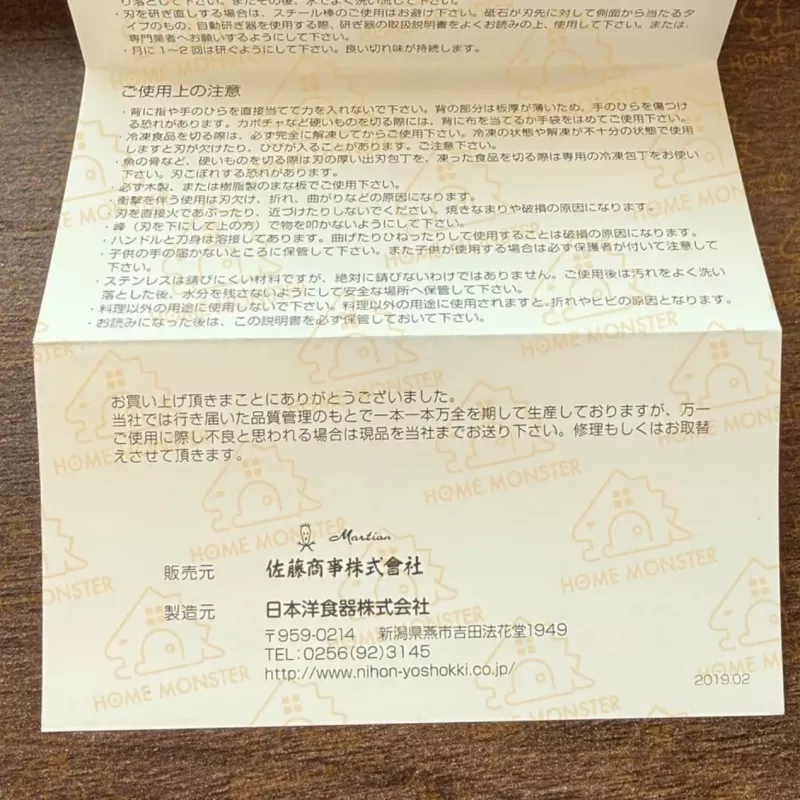 り落として下さい。またその後、水でよく洗い流して下さい。
・刃を研ぎ直しする場合は、スチール棒のご使用はお避け下さい。砥石が刃先に対して側面から当たるタ
イプのもの、自動研ぎ器を使用する際、研ぎ器の取扱説明書をよくお読みの上、使用して下さい。または、
専門業者へお願いするようにして下さい。
・月に1～2回は研ぐようにして下さい。良い切れ味が持続します。
ご使用上の注意
・背に指や手のひらを直接当てて力を入れないで下さい。背の部分は板厚が薄いため、手のひらを傷つけ
る恐れがあります。カボチャなど硬いものを切る際には、背に布を当てるか手袋をはめてご使用下さい。
・冷凍食品を切る際は、必ず完全に解凍してからご使用下さい。冷凍の状態や解凍が不十分の状態で使用
しますと刃が欠けたり、ひびが入ることがあります。ご注意下さい。
・魚の骨など、硬いものを切る際は刃の厚い出刃包丁を、凍った食品を切る際は専用の冷凍包丁をお使い
下さい。刃こぼれする恐れがあります。
・必ず木製、または樹脂製のまな板でご使用下さい。
・衝撃を伴う使用は刃欠け、折れ、曲がりなどの原因になります。
・刃を直接火であぶったり、近づけたりしないでください。焼きなまりや破損の原因になります。
・峰（刃を下にして上の方）で物を叩かないようにして下さい。
・ハンドルと刀身は溶接してあります。曲げたりひねったりして使用することは破損の原因になります。
・子供の手の届かないところに保管して下さい。また子供が使用する場合は必ず保護者が付いて注意して
下さい。
・ステンレスは錆びにくい材料ですが、絶対に錆びないわけではありません。ご使用後は汚れをよく洗い
落とした後、水分を残さないようにして安全な場所へ保管して下さい。
・料理以外の用途に使用しないで下さい。料理以外の用途に使用されますと、折れやヒビの原因となります。
・お読みになった後は、この説明書を必ず保管しておいて下さい。
お買い上げ頂きまことにありがとうございました。
当社では行き届いた品質管理のもとで一本一本万全を期して生産しておりますが、万一
ご使用に際し不良と思われる場合は現品を当社までお送り下さい。修理もしくはお取替
えさせて頂きます。
Martian
販売元 佐藤商事株式會社
製造元 日本洋食器株式会社
〒959-0214 新潟県燕市吉田法花堂1949
TEL:0256(92)3145
http://www.nihon-yoshokki.co.jp/
2019.02
HOME MONSTER